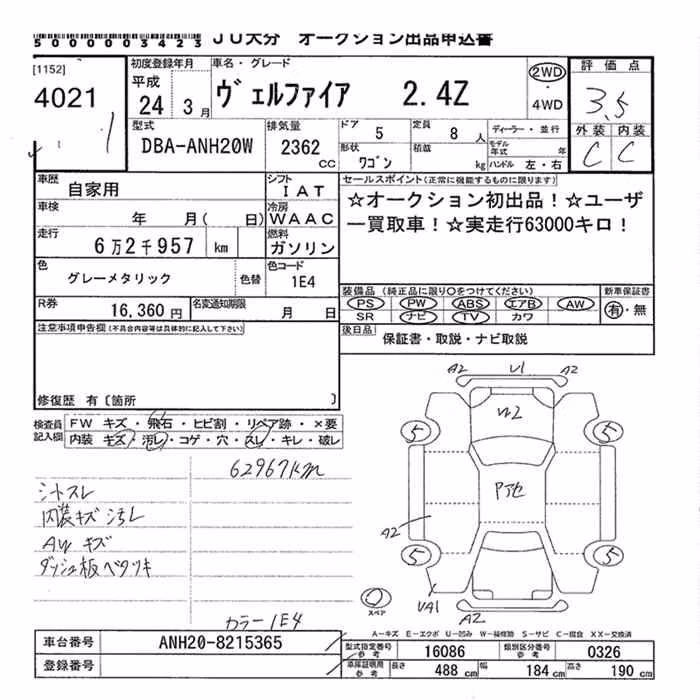 5000003423 JU大分 オークション出品申込書
[1152]
4021
1
初度登録年月
平成
24 3月
車名・グレード
ヴェルファイア 2.4Z
2WD
・
4WD
評価点
3.5
外装 内装
C C
型式
DBA-ANH20W
排気量
2362 cc
ドア 5
定員 8 人
ディーラー・並行
形状
ワゴン
積載 kg
モデル年式 年
ハンドル 左・右
車歴 自家用
シフト IAT
車検 年 月( 日)
冷房 WAAC
走行 6万2千957 km
燃料 ガソリン
色 グレーメタリック 色替
色コード 1E4
R券 16,360円
名変通知期限 月 日
セールスポイント(正常に機能するものに限ります)
☆オークション初出品!☆ユーザ
ー買取車!☆実走行63000キロ!
装備品(純正品に限り○をつけてください)
PS PW ABS エアB AW
SR ナビ TV カワ
新車保証書
有・無
後日品 保証書・取説・ナビ取説
注意事項申告欄(不具合内容等は具体的に記入して下さい)
修復歴 有〔箇所 〕
検査員記入欄
FW キズ・飛石・ヒビ割・リペア跡・×要
内装 キズ・汚レ・コゲ・穴・スレ・キレ・破レ
62967km
シートスレ
内装キズ汚レ
AW キズ
ダッシュ板ベタツキ
カラー1E4
A2 U1 A2
W2
5 5
Pア色
A2
5 5
UA1
A2
スペア
A-キズ E-エクボ U-凹み W-補修跡 S-サビ C-腐食 XX-交換済
車台番号 ANH20-8215365
登録番号
型式指定番号参考 16086
類別区分番号参考 0326
車庫証明用参考 長さ 488 cm 幅 184 cm 高さ 190 cm